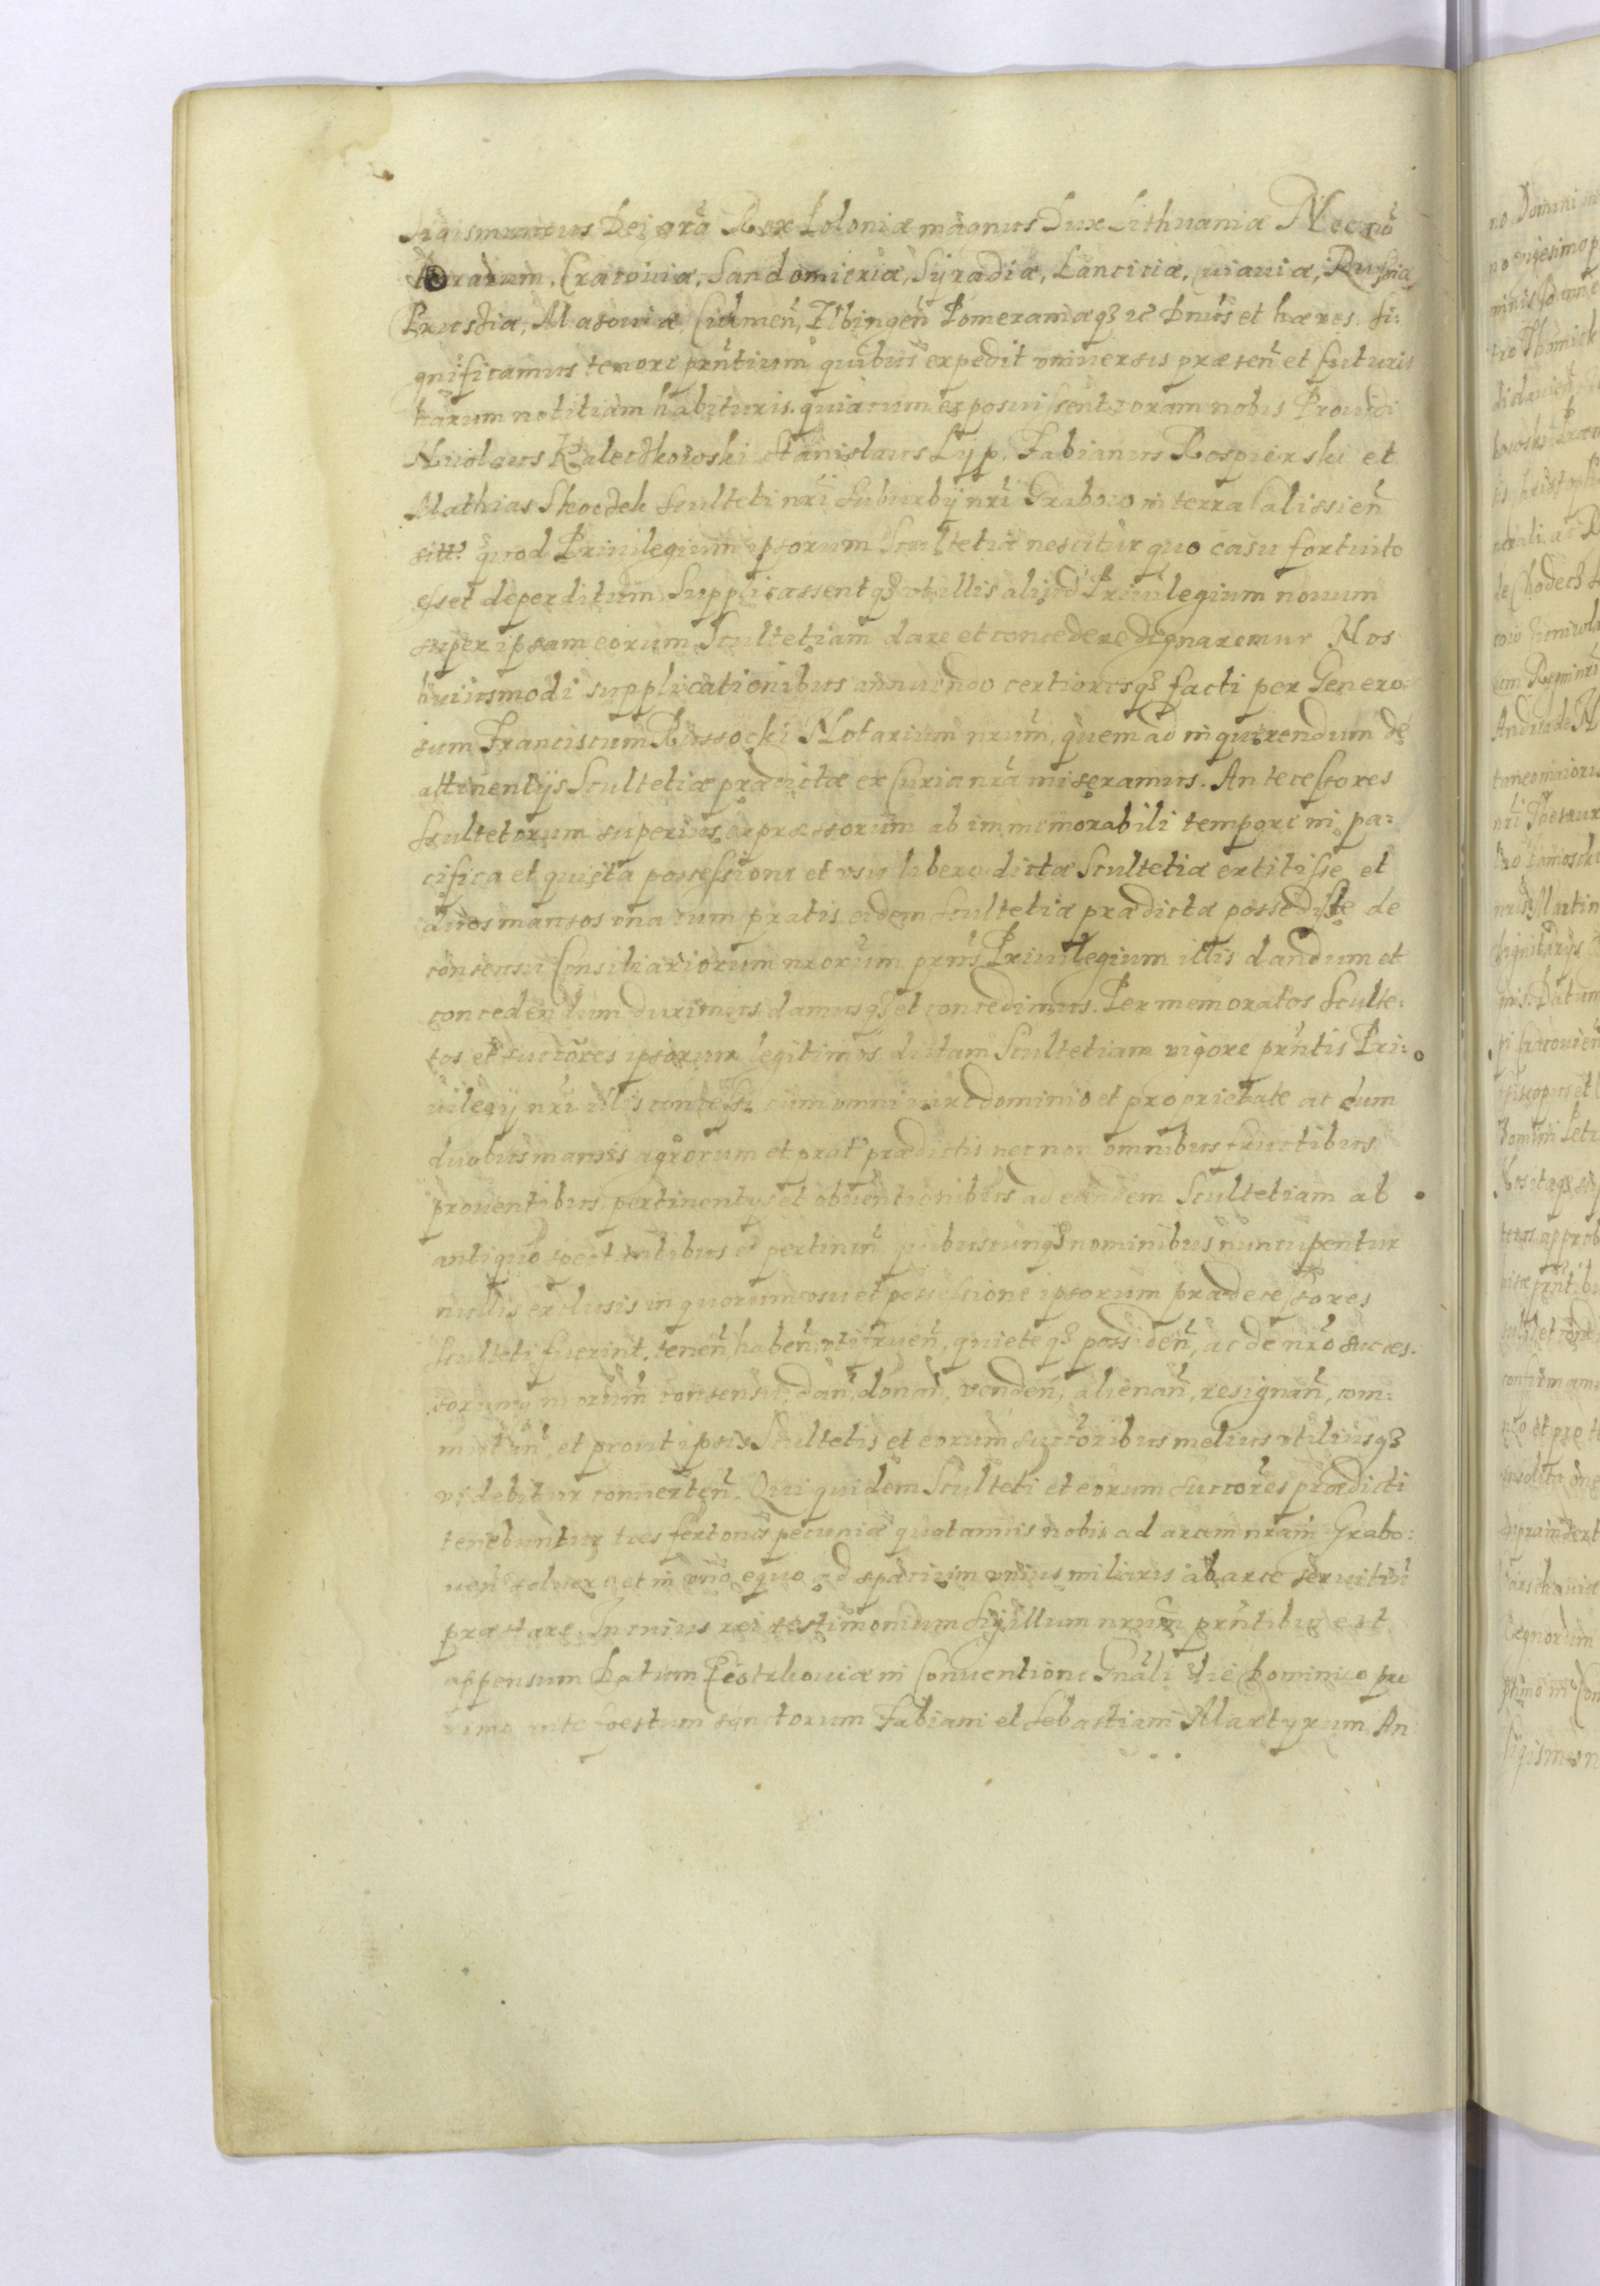 Sigismundus Dei gra Rex Poloniæ magnus Dux Lithuaniæ Necnō
terrarum, Cracoviæ, Sandomieriæ, Syradiæ, Lanciciæ, Cuiaviæ, Russiæ
Prussiæ, Masoviæ Culmeñ, Elbingeñ Pomeraniæq3 &c Dnūs et hæres. Si:
gnificamus tenore prñtium quibus expedit universis præseñ et futuris
harum notitiam habituris. quia cum exposuissent coram nobis Providi
Nicolaus Kaleczkowski Stanislaus Lyp, Fabianus Rospierski et
Mathias Skoczek Sculteti nrī Suburbÿ nrī Grabowo in terra Calissieñ
sitt. quod Privilegium ipsorum Scultetiæ nescitur quo casu fortuito
esset deperditum Supplicassentq3 ut illis aliud Privilegium novum
super ipsam eorum Scultetiam dare et concedere dignaremur Nos
huiusmodi supplicationibus annuendo certioresq3 facti per Genero:
sum Franciscum Russocki Notarium nrūm, quem ad inquirendum de
attinentÿs Scultetiæ prædictæ ex Curia nrā miseramus. Antecessores
Scultetorum superius expressorum ab immemorabili tempore in pa:
cifica et quieta possessione et usu libero dictæ Scultetiæ extitisse et
duos mansos una cum pratis eidem Scultetiæ prædictæ possedisse de
consensu Consiliariorum nrorum prñs Privilegium illis dandum et
concedendum duximus damusq3 et concedimus. Per memoratos Sculte:
tos et succōres ipsorum legitimos dictam Scultetiam vigore prñtis Pri:
vilegÿ nrī illis concessi cum omni iure dominio et proprietate ac cum
duobus mansis agrorum et prat. prædictis nec non omnibus fructibus
proventibus pertinentÿs et obventionibus ad eandem Scultetiam ab
antiquo spectantibus et pertineñ quibuscunq3 nominibus nuncupentur
nullis exclusis in quorum usu et possessione ipsorum prædecessores
Sculteti fuerint. teneñ habeñ, utifrueñ, quieteq3 possideñ, ac de nrō succes:
sorumq nrorum consensu, dañ, donañ, vendeñ, alienañ, resignañ, com:
mutañ, et prout ipsis Scultetis et eorum succōribus melius utiliusq3
videbitur converteñ. Qui quidem Sculteti et eorum succōres prædicti
tenebuntur tres fertones pecuniæ quotannis nobis ad arcem nram Grabo:
veñ solvere et in uno equo ad spacium unius miliaris ab arce servitiū
præstare. In cuius rei testimonium Sigillum nrūm prñtibus est
appensum Datum Piotrkoviæ in Conventione Gnāli die Dominico pro
ximo ante festum sanctorum Fabiani et Sebastiani Martyrum An